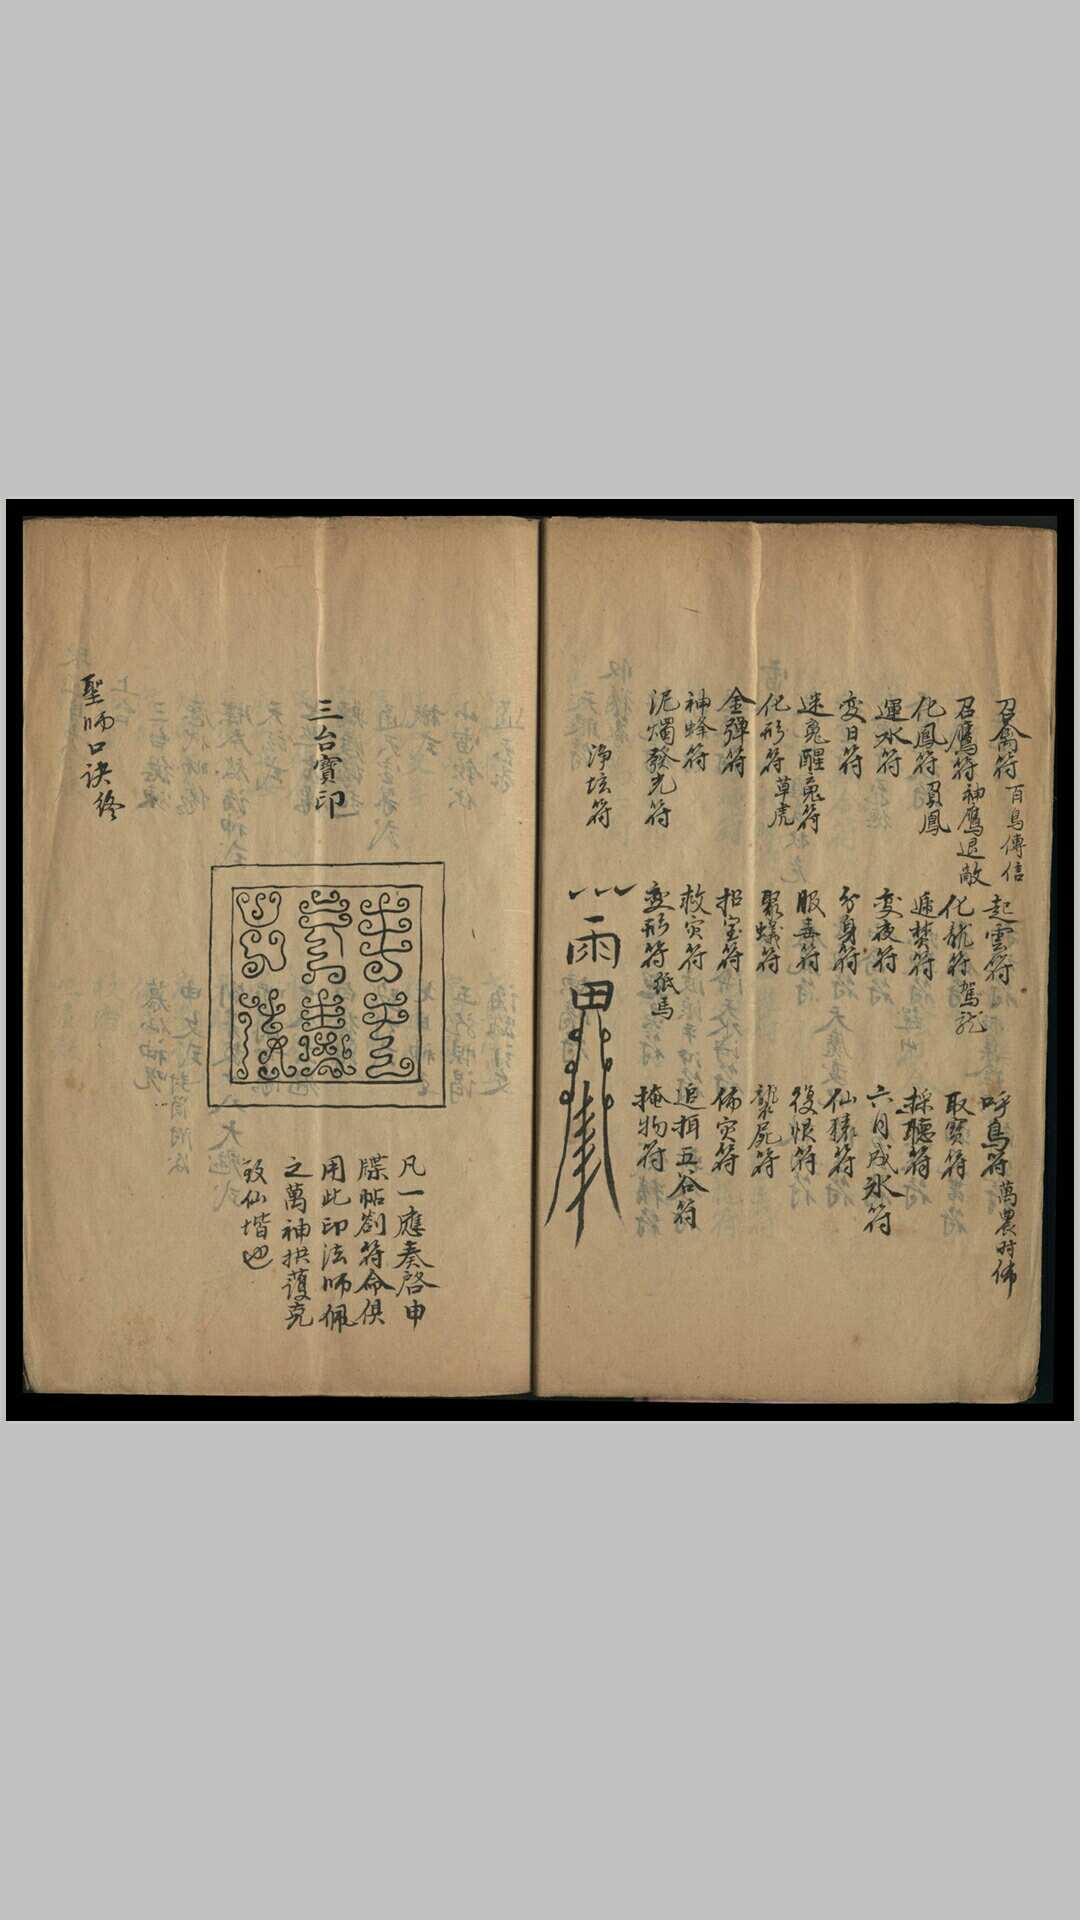 召禽符 百鳥傳信
起雲符
呼鳥符 萬農时佈
召鷹符 神鷹退敵
化龍符 駕龍
取寳符
化鳳符 召鳳
遁焚符
採聽符
運水符
变夜符
六月成冰符
变日符
分身符
仙猿符
迷寃醒寃符
服毒符
復恨符
化形符 草虎
聚蟻符
襲屍符
金彈符
招宝符
佈灾符
神蜂符
救灾符
追揖五谷符
泥燭發光符
变形符 紙馬
掩物符
净坛符
雨
三台寳印
凡一應奏啓申
牒帖劄符命俱
用此印法師佩
之萬神拱護克
致仙堦也
聖师口诀終